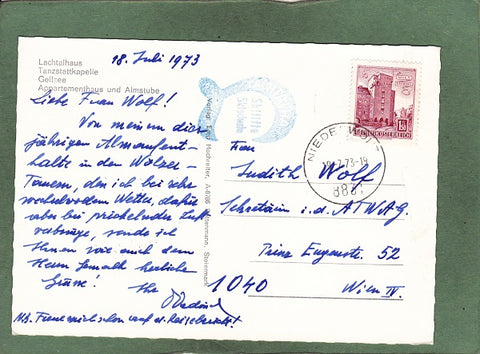 18. Juli 1973
Lachtalhaus
Tanzstattkapelle
Gellsee
Appartementhaus und Almstube
Liebe Frau Wolf!
Von meinem dies-
jährigen Almaufent-
halte in den Wölzer-
Tauern, den ich bei sehr
wechselvollem Wetter, dafür
aber bei prickelnder Luft
verbringe, sende ich
Ihnen wie auch dem
Herrn Gemahl herzliche
Grüße! Ihr
NB. Freue mich schon auf d. Reisebericht!
Verlag
Steiermark
REPUBLIK ÖSTERREICH
NIEDERWÖLZ
.7.73-18
8831
Frau
Judith Wolf
Sekretärin i.d. ATWAG.
Prinz Eugenstr. 52
1040 Wien IV.